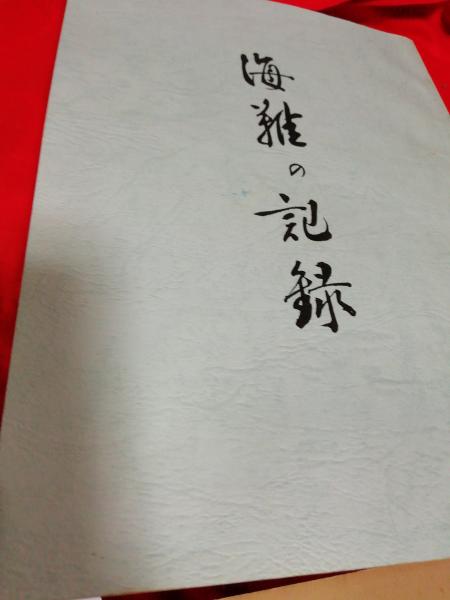 海難の記録